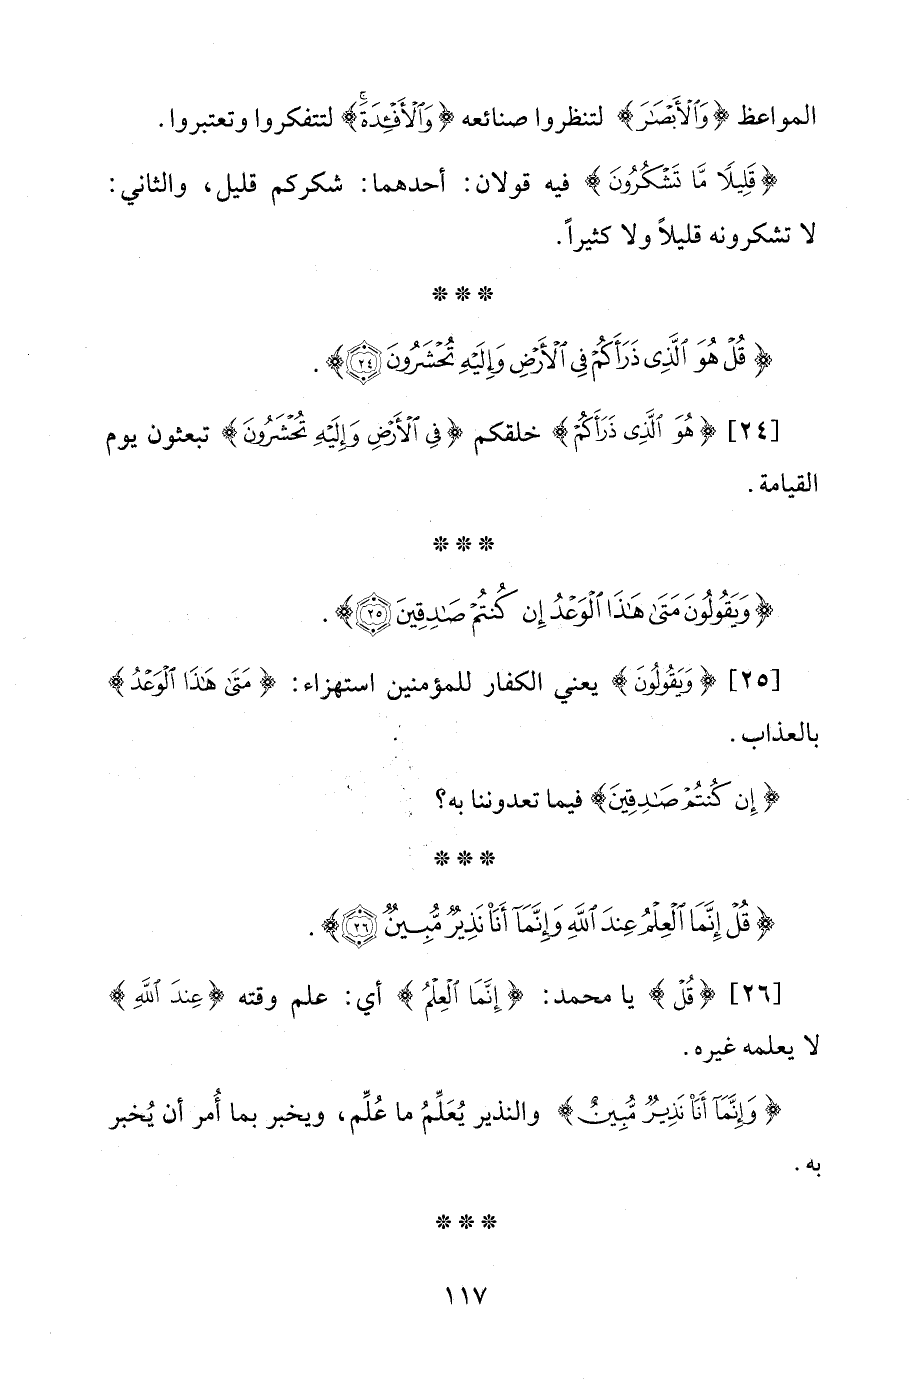 المواعظ ﴿وَالْأَبْصَارَ﴾ لتنظروا صنائعه ﴿وَالْأَفْئِدَةَ﴾ لتتفكروا وتعتبروا.
﴿قَلِيلًا مَّا تَشْكُرُونَ﴾ فيه قولان: أحدهما: شكركم قليل، والثاني:
لا تشكرونه قليلاً ولا كثيراً.
* * *
﴿قُلْ هُوَ الَّذِى ذَرَأَكُمْ فِى الْأَرْضِ وَإِلَيْهِ تُحْشَرُونَ ٢٤﴾.
[٢٤] ﴿هُوَ الَّذِى ذَرَأَكُمْ﴾ خلقكم ﴿فِى الْأَرْضِ وَإِلَيْهِ تُحْشَرُونَ﴾ تبعثون يوم
القيامة.
* * *
﴿وَيَقُولُونَ مَتَىٰ هَٰذَا الْوَعْدُ إِن كُنتُمْ صَٰدِقِينَ ٢٥﴾.
[٢٥] ﴿وَيَقُولُونَ﴾ يعني الكفار للمؤمنين استهزاء: ﴿مَتَىٰ هَٰذَا الْوَعْدُ﴾
بالعذاب.
﴿إِن كُنتُمْ صَٰدِقِينَ﴾ فيما تعدوننا به؟
* * *
﴿قُلْ إِنَّمَا الْعِلْمُ عِندَ اللَّهِ وَإِنَّمَا أَنَا۠ نَذِيرٌ مُّبِينٌ ٢٦﴾.
[٢٦] ﴿قُلْ﴾ يا محمد: ﴿إِنَّمَا الْعِلْمُ﴾ أي: علم وقته ﴿عِندَ اللَّهِ﴾
لا يعلمه غيره.
﴿وَإِنَّمَا أَنَا۠ نَذِيرٌ مُّبِينٌ﴾ والنذير يُعَلِّمُ ما عُلِّم، ويخبر بما أُمر أن يُخبر
به.
* * *
١١٧